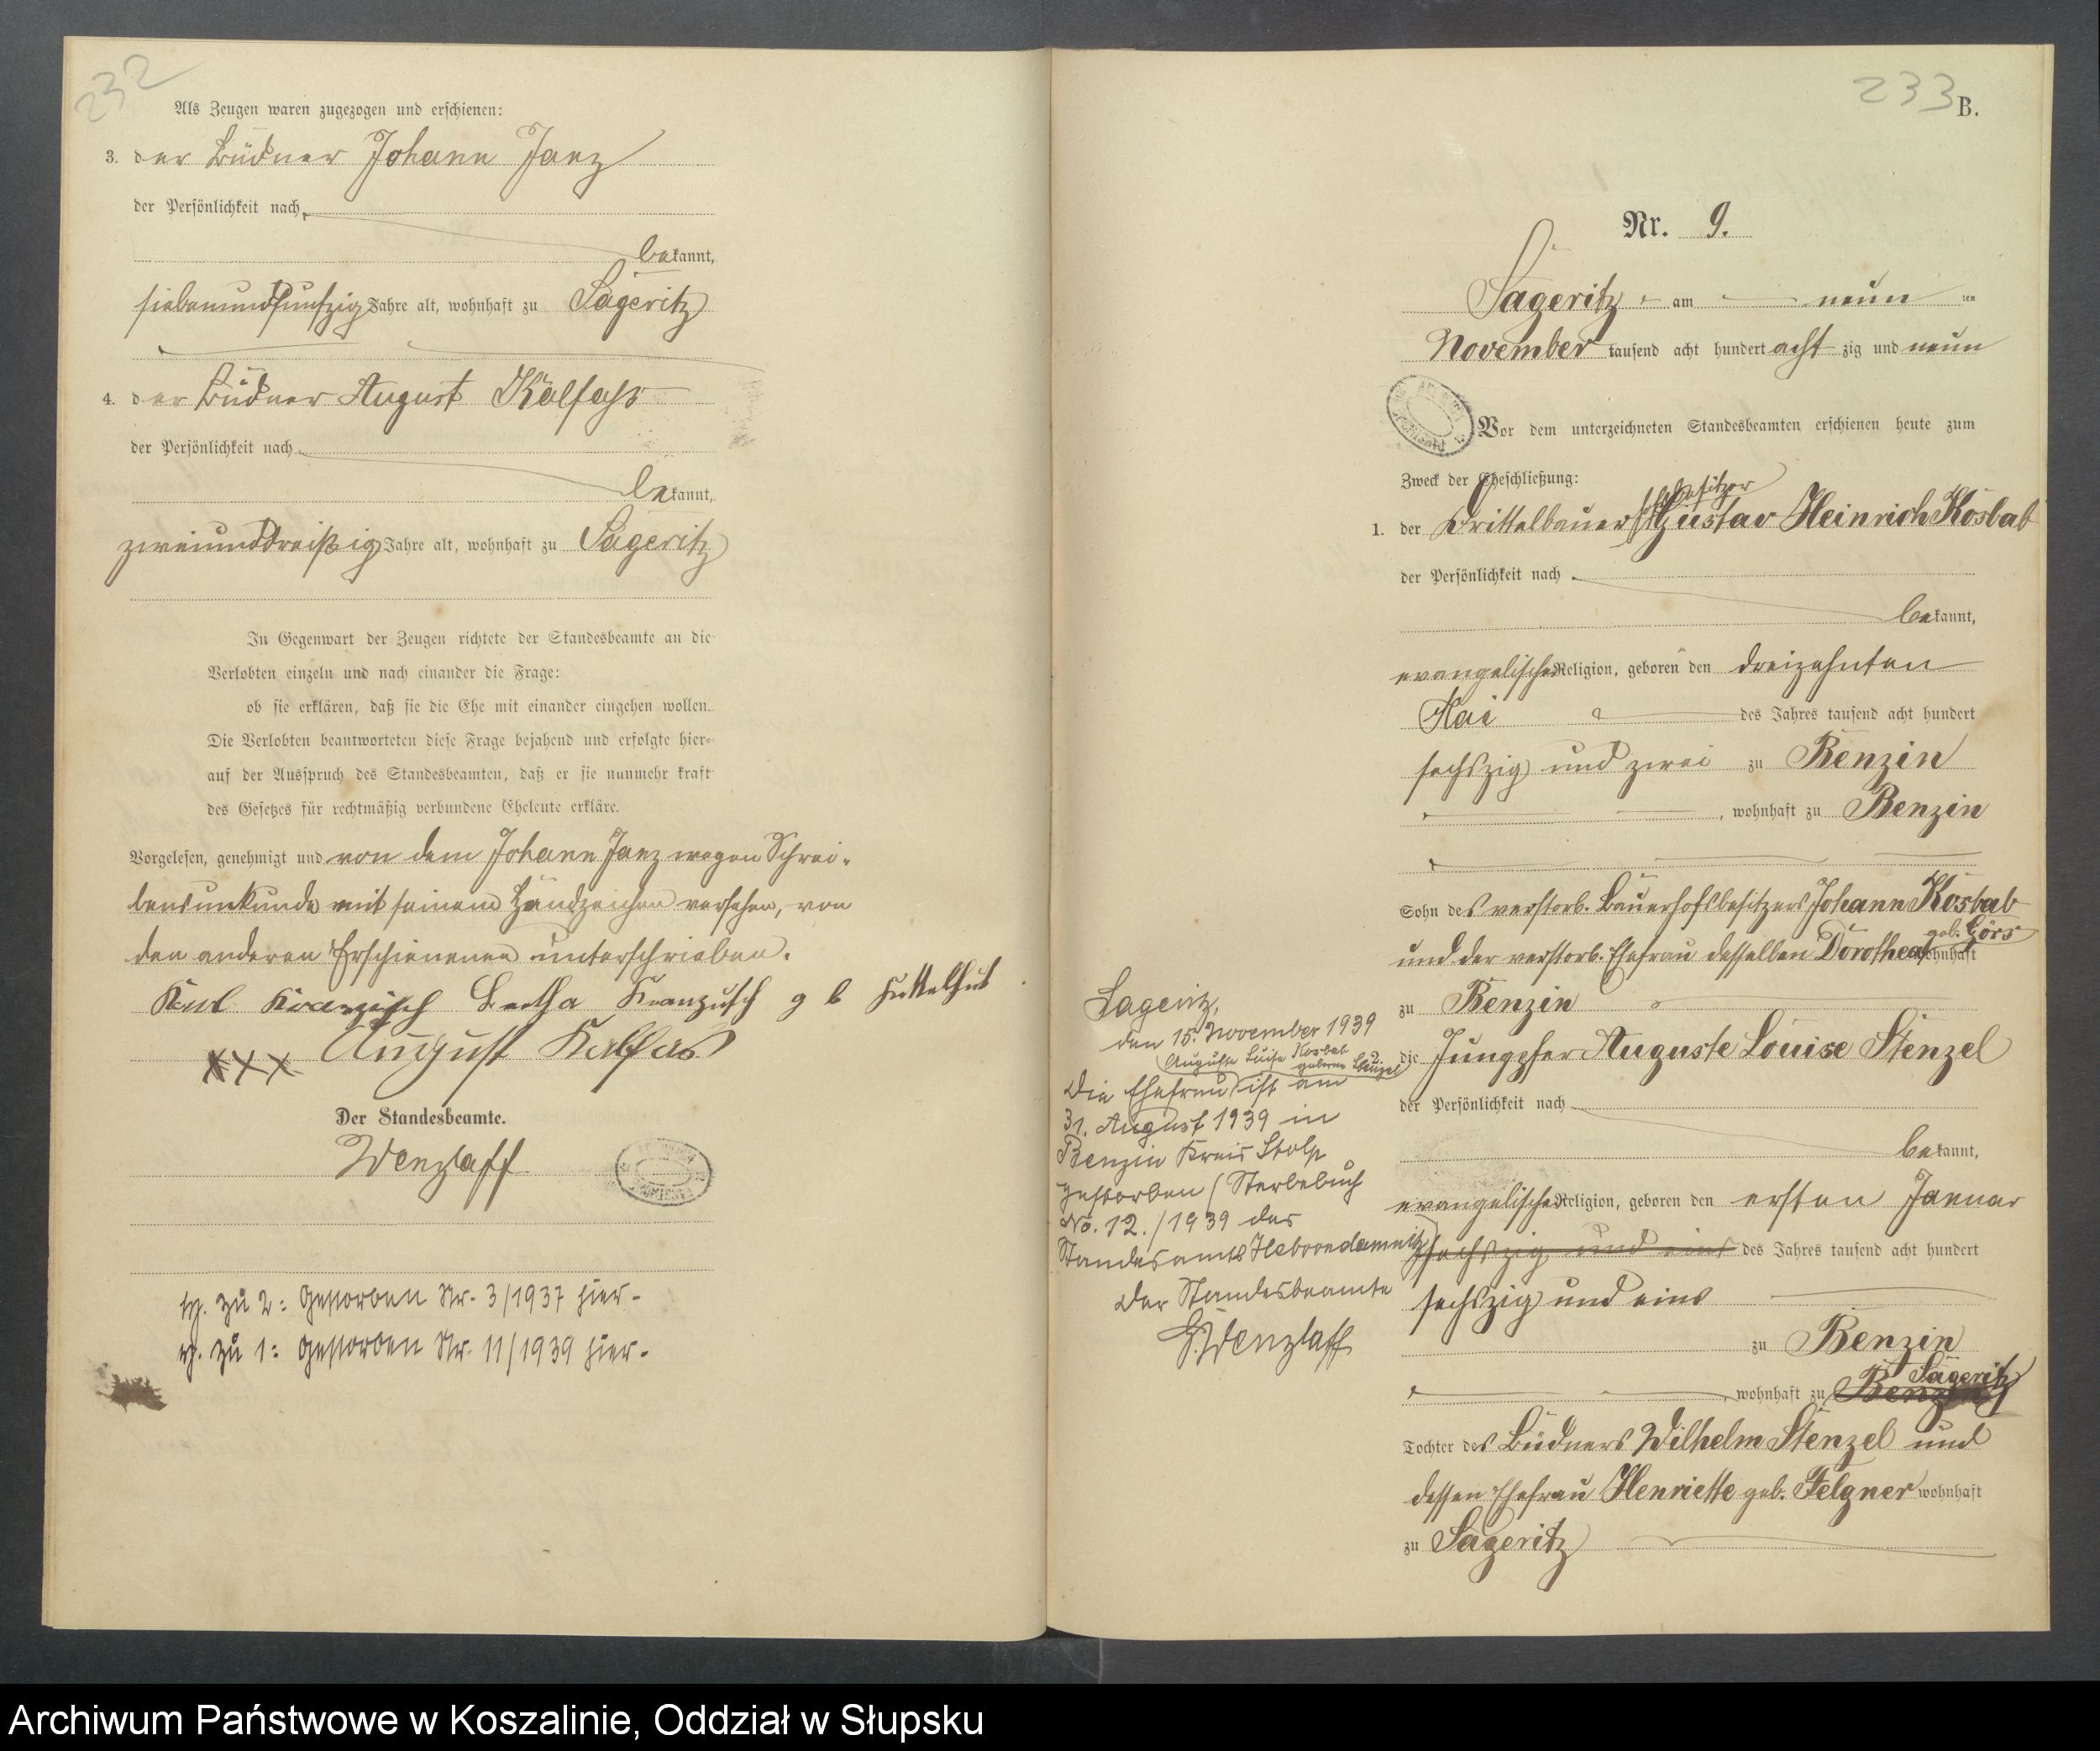 232
Als Zeugen waren zugezogen und erschienen:
3. der Büdner Johann Janz
der Persönlichkeit nach
bekannt,
siebenundfunfzig Jahre alt, wohnhaft zu Sageritz
4. der Büdner August Kalfass
der Persönlichkeit nach
bekannt,
zweiunddreißig Jahre alt, wohnhaft zu Sageritz
In Gegenwart der Zeugen richtete der Standesbeamte an die
Verlobten einzeln und nach einander die Frage:
ob sie erklären, daß sie die Ehe mit einander eingehen wollen.
Die Verlobten beantworteten diese Frage bejahend und erfolgte hier-
auf der Ausspruch des Standesbeamten, daß er sie nunmehr kraft
des Gesetzes für rechtmäßig verbundene Eheleute erkläre.
Vorgelesen, genehmigt und von dem Johann Janz wegen Schrei-
bensunkunde mit seinem Handzeichen versehen, von
den anderen Erschienenen unterschrieben.
Karl Bertha g b
xxx August Kalfas
Der Standesbeamte.
Wenzlaff
zu 2: Gestorben Nr. 3/1937 hier.
zu 1: Gestorben Nr. 11/1939 hier.
233
B.
Nr. 9.
Sageritz am neun ten
November tausend acht hundert acht zig und neun
Vor dem unterzeichneten Standesbeamten erschienen heute zum
Zweck der Eheschließung:
1. der Drittelbauerhofsbesitzer Gustav Heinrich Kosbab
der Persönlichkeit nach
bekannt,
evangelischer Religion, geboren den dreizehnten
Mai des Jahres tausend acht hundert
sechszig und zwei zu Benzin
, wohnhaft zu Benzin
Sohn des verstorb. Bauerhofsbesitzers Johann Kosbab
und der verstorb. Ehefrau desselben Dorothea geb. Görs wohnhaft
zu Benzin
2. die Jungfer Auguste Louise Stenzel
der Persönlichkeit nach
bekannt,
evangelischer Religion, geboren den ersten Januar
sechszig und eins des Jahres tausend acht hundert
sechszig und eins
zu Benzin
, wohnhaft zu Benzin Sageritz
Tochter des Büdners Wilhelm Stenzel und
dessen Ehefrau Henriette geb. Felgner wohnhaft
zu Sageritz
Sageritz,
den 15. November 1939
Auguste Luise Kosbab
geborene Stenzel
Die Ehefrau ist am
31. August 1939 in
Benzin Kreis Stolp
gestorben (Sterbebuch
No. 12./1939 des
Standesamts Hebrondamnitz)
Der Standesbeamte
G. Wenzlaff
Archiwum Państwowe w Koszalinie, Oddział w Słupsku